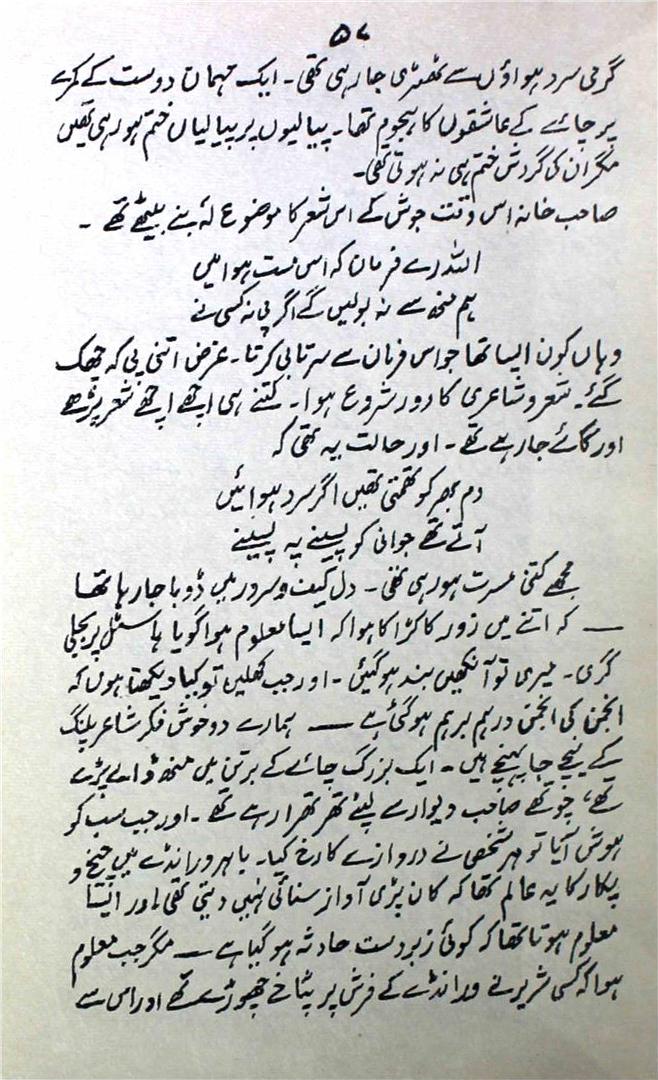 ۵۷
گرمی سرد ہواؤں سے ٹھٹھری جا رہی تھی۔ ایک مہمان دوست کے کمرے
پر چائے کے عاشقوں کا ہجوم تھا۔ پیالیوں پر پیالیاں ختم ہو رہی تھیں
مگر ان کی گردش ختم ہی نہ ہوتی تھی۔
صاحب خانہ اس وقت جوش کے اس شعر کا موضوع لۂ بنے بیٹھے تھے ۔
اللہ رے فرمان کہ اس مست ہوا میں
ہم منھ سے نہ بولیں گے اگر پی نہ کسی نے
وہاں کون ایسا تھا جو اس فرمان سے سرتابی کرتا۔ غرض اتنی پی کہ چھک
گئے۔ شعر و شاعری کا دور شروع ہوا۔ کتنے ہی اچھے اچھے شعر پڑھے
اور گائے جا رہے تھے۔ اور حالت یہ تھی کہ
دم بھر کو تھمتی تھیں اگر سرد ہوائیں
آتے تھے جوانی کو پسینے پہ پسینے
مجھے کتنی مسرت ہو رہی تھی۔ دل کیف و سرور میں ڈوبا جا رہا تھا
— کہ اتنے میں زور کا کڑاکا ہوا کہ ایسا معلوم ہوا گویا ہاسٹل پر بجلی
گری۔ میری تو آنکھیں بند ہو گئیں۔ اور جب کھلیں تو کیا دیکھتا ہوں کہ
انجمن کی انجمن درہم برہم ہو گئی ہے — ہمارے دو خوش فکر شاعر پلنگ
کے نیچے جا پہنچے ہیں۔ ایک بزرگ چائے کے برتن میں منھ ڈالے پڑے
تھے، چوتھے صاحب دیوار سے لپٹے تھر تھرا رہے تھے۔ اور جب سب کو
ہوش آیا تو ہر شخص نے دروازے کا رخ کیا۔ باہر ورانڈے میں چیخ و
پکار کا یہ عالم تھا کہ کان پڑی آواز سنائی نہیں دیتی تھی اور ایسا
معلوم ہوتا تھا کہ کوئی زبردست حادثہ ہو گیا ہے — مگر جب معلوم
ہوا کہ کسی شریر نے ورانڈے کے فرش پر پٹاخے چھوڑے تھے اور اس سے